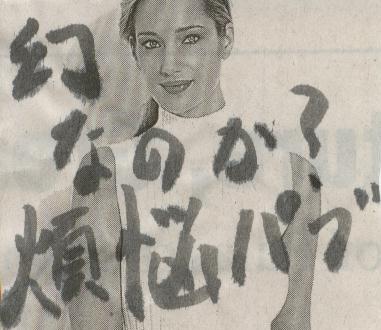 幻
なのか?
煩悩パブ